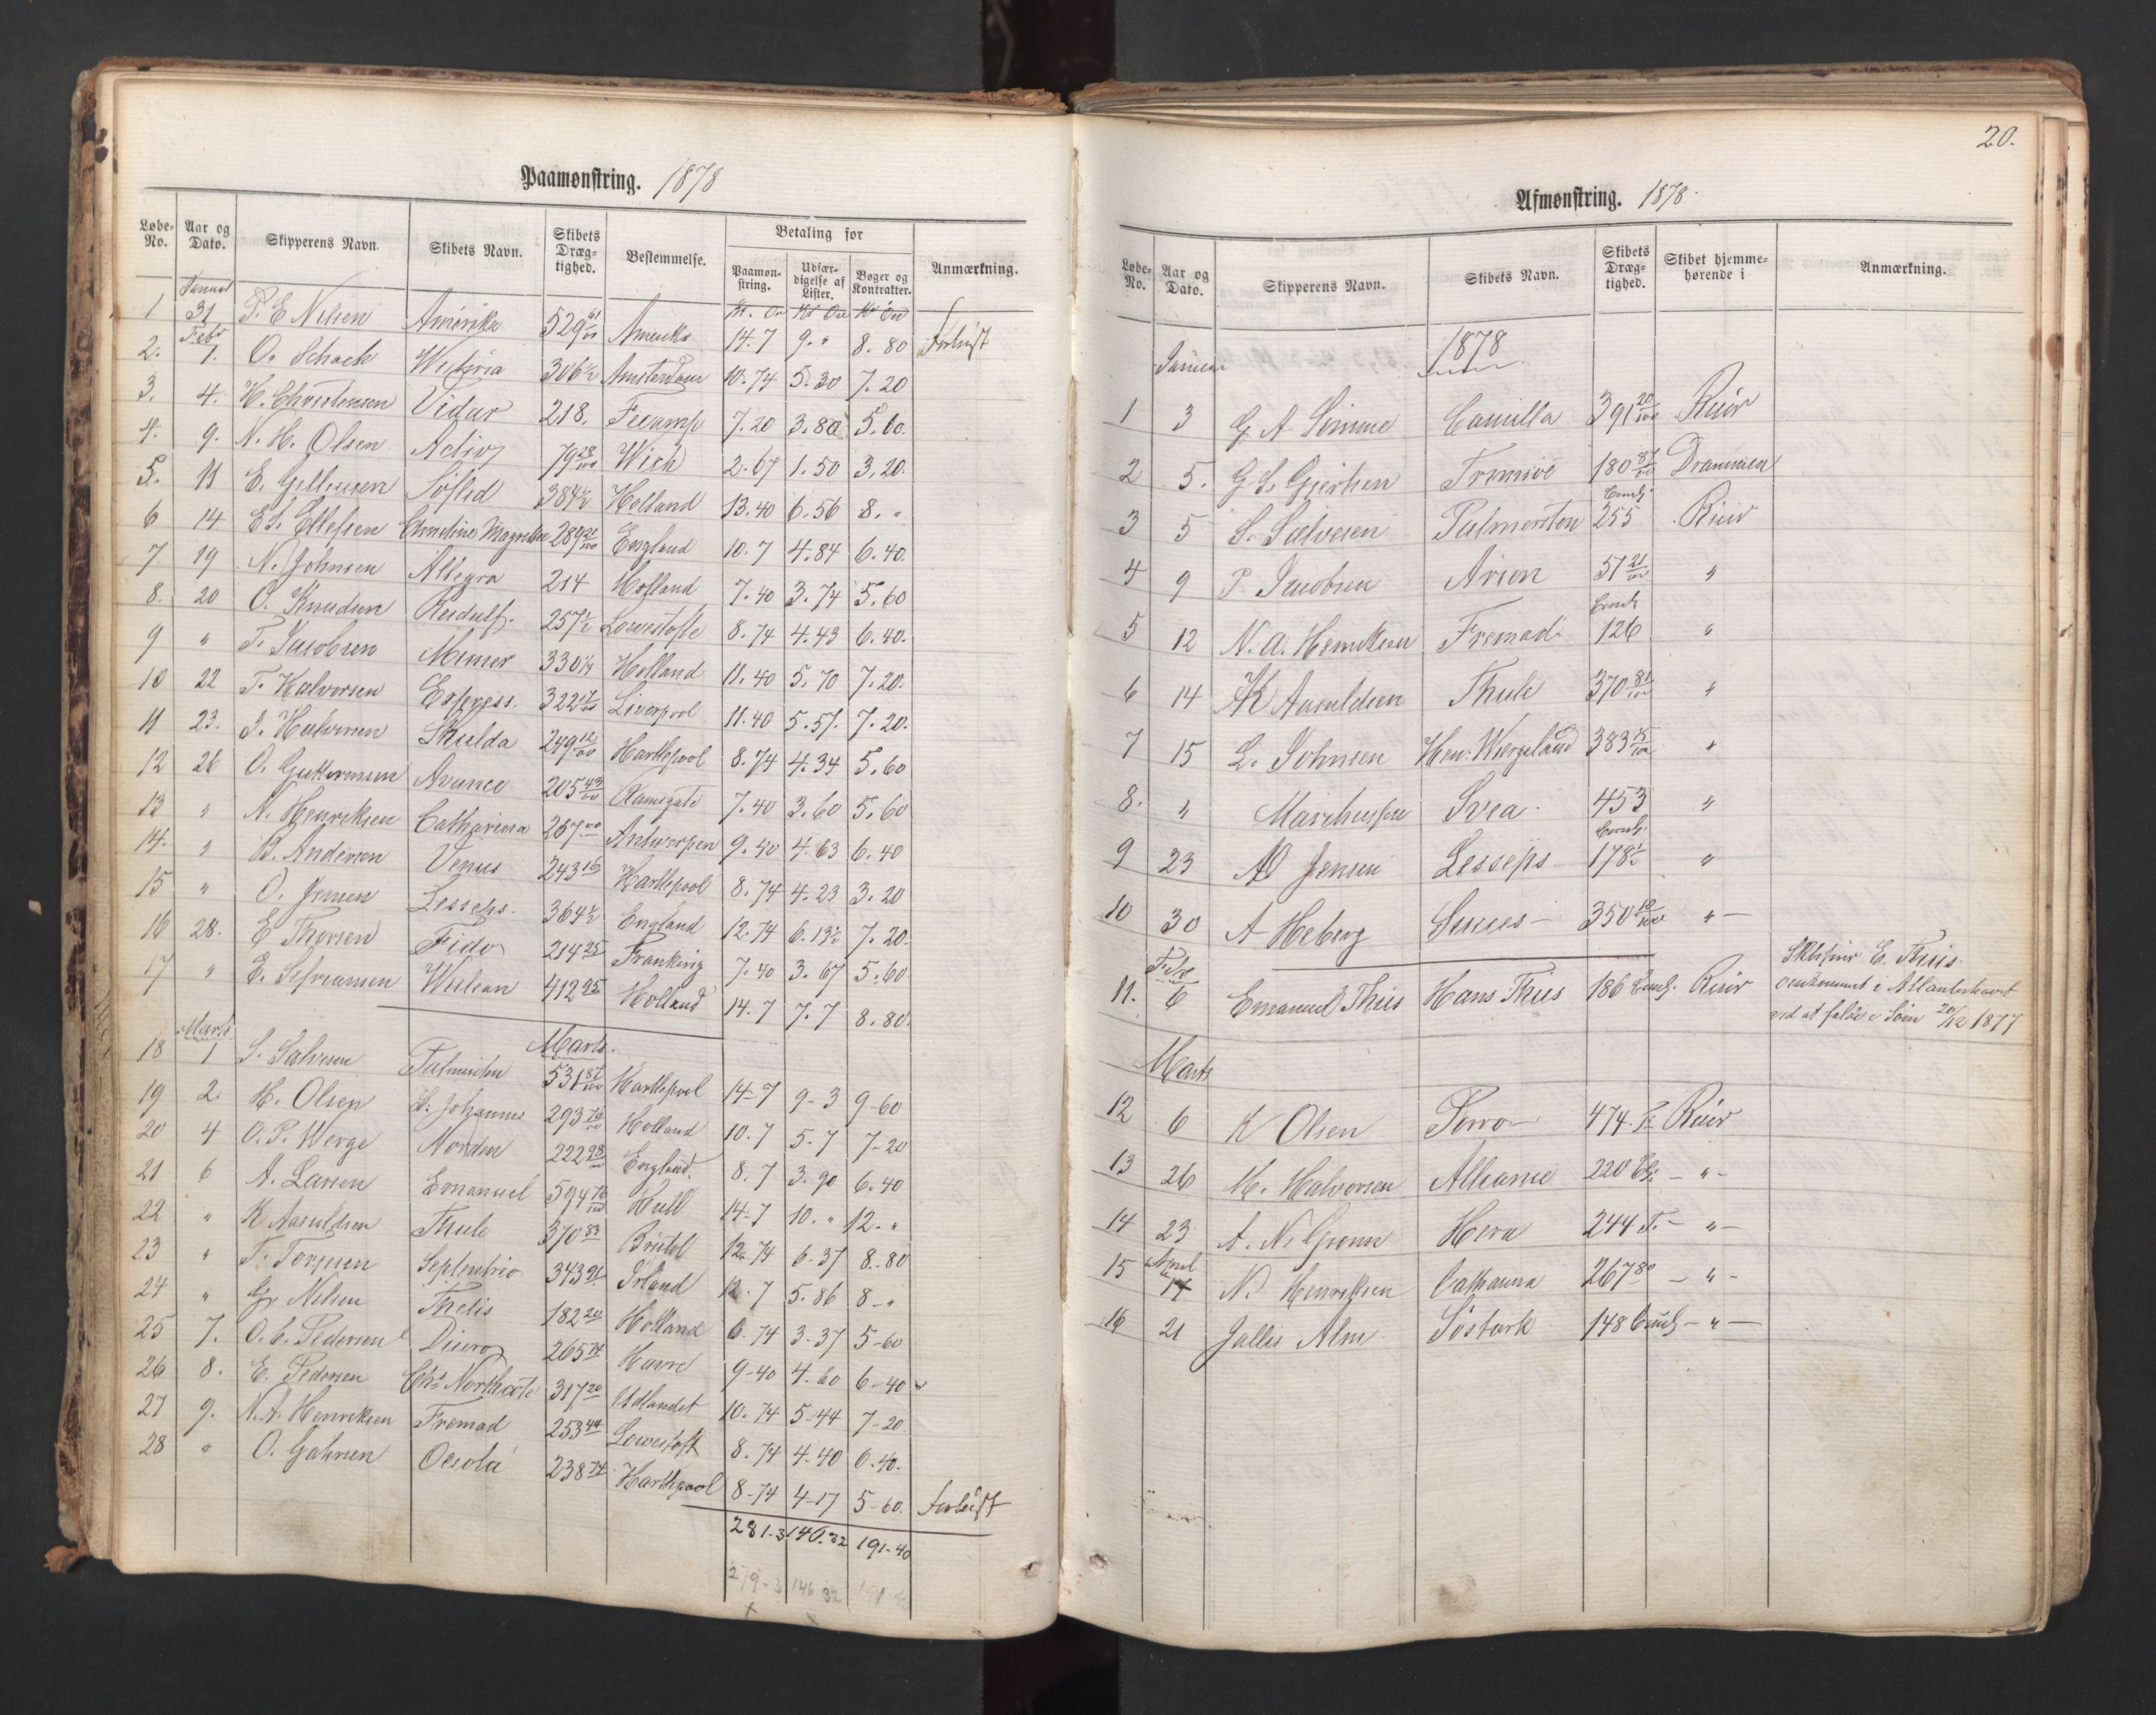 Paamønstring. 1878
Løbe-No. Aar og Dato. Skipperens Navn. Skibets Navn. Skibets Dræg-tighed. Bestemmelse. Betaling for Paamøn-string. Udfær-digelse af Lister. Bøger og Kontrakter. Anmærkning.
Januar
1 31 P. E Nilsen Amerika 529 61/00 Amerika 14.7 9. " 8.80 Forlist
Febr
2. 1. O. Schach Victoria 306 1/2 Amsterdam 10.74 5.30 7.20
3. 4. H. Christensen Vidar 218. Fecamp 7.20 3.80 5.60.
4. 9. N. H. Olsen Activ 79 28/100 Wick 2.67 1.50 3.20.
5. 11 E. Gellersen Søfled 384 1/2 Holland 13.40 6.56 8. "
6 14 E. S. Ellefsen Christine Magrethe 289 21/100 England 10.7 4.84 6.40.
7. 19 N. Johnsen Allegra 214 Holland 7.40 3.74 5.60
8. 20 O. Knudsen Reidulf. 257 1/2 Lowestofte 8.74 4.43 6.40.
9 " T. Jacobsen Mimer 330 1/4 Holland 11.40 5.70 7.20.
10 22 T. Halvorsen Express. 322 17/00 Liverpool 11.40 5.57. 7.20.
11 23. J. Halvorsen Skulda 249 12/00 Hartlepool 8.74 4.34 5.60
12 26 O. Guttormsen Avance 205 43/00 Ramsgate 7.40 3.60 5.60
13 " N. Henriksen Catharina 267. Antwerpen 9.40 4.63 6.40
14. " B. Andersen Venus 243 16 Hartlepool 8.74 4.23 3.20
15 " O. Jensen Lesseps. 364 1/2 England 12.74 6.13 1/2 7.20.
16 28. E Thorsen Fido 214 25 7.40 3.67 5.60
17 " E. Vulcan 412 95 Holland 14.7 7.7 8.80.
Marts Marts.
18 1 S. Salvesen Palmerston 531 87/100 Hartlepool 14-7 9-3 9-60
19 2. H. Olsen St. Johannes 293 76/00 Holland 10.7 5.7 7-20
20 4 O. P. Werge Norden 222 98/00 England. 8.7 3.90 6.40
21 6 A. Larsen Emanuel 594 76/100 Hull 14-7 10. " 12. "
22 " K Aasuldsen Thule 370 83 Bristol 12.74 6-37 8.80
23 " T. Torjusen Septentrio 343 91 Irland 12.7 5.86 8-"
24 " G. Nilsen Thetis 182 20 Holland 6.74 3-37 5-60
25 7. O. C. Pedersen 265 74 Havre 9-40 4.60 6-40
26 8. E. Pedersen Chs. Northcote 317 20 Udlandet 10.74 5-44 7-20
27 9. N. A. Henriksen Fremad 253 44 Lowestoft 8.74 4-40 6.40.
28 " O. Gahrsen Oceola 238 74 Hartlepool 8-74 4-17 5-60. Forlist
281-3 146.32 191-40
279-3 146 32
20.
Afmønstring. 1878.
Løbe-No. Aar og Dato. Skipperens Navn. Skibets Navn. Skibets Dræg-tighed. Skibet hjemme-hørende i Anmærkning.
Januar 1878
1 3 G A Simme Camilla 391 20/100 Riiör
2 5. G. S. Gjertsen Tromsoe 180 87/00 Drammen
3 5 S. Salvesen Palmerston Coml. 255 Riiör
4 9 P Jacobsen Arion 57 21/00 "
5 12 N. A. Henriksen Fremad Coml. 126 "
6 14 K Aasuldsen Thule 370 81/100 "
7 15 L. Johnsen Hen: Wergeland 383 75/100 "
8. " Marcussen Svea. 453 "
9 23 A O Jensen Lesseps Coml. 178 1/2 "
10 30 A Heberg Sirius 350 10/100 " -
Febr
11. 6 Emanuel Thiis Hans Thiis 186 Coml. Riiör Skibsfører E. Thiis. omkommet i Atlanterhavet ved at falde i Søen 20/12 1877
Marts
12 6 K Olsen Porro 474. T. Riiör
13 26 M. Halvorsen Alliance 220 Cl. - " -
14 23 A. N. Grønn Hera 244 T. - " -
April
15 17 N. Henriksen Catharina 267 80 - " -
16 21 Jallis Alm Søstark 148 Coml - " -